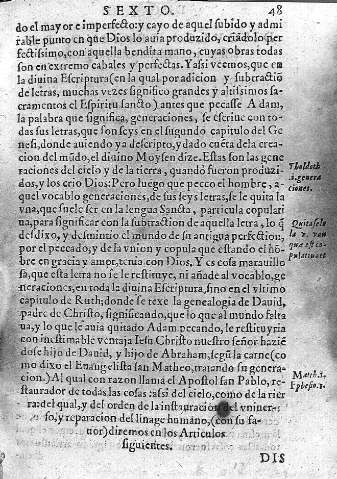 SEXTO. 48
do el mayor e imperfecto: y cayo de aquel subido y admi
rable punto en que Dios lo auia produzido, criãdolo per
fectissimo, con aquella bendita mano, cuyas obras todas
son en extremo cabales y perfectas. Y assi veemos, que en
la diuina Escriptura (en la qual por adicion y subtractiõ
de letras, muchas vezes significo grandes y altissimos sa-
cramentos el Espiritu sancto) antes que pecasse Adam,
la palabra que significa, generaciones, se escriue con to-
das sus letras, que son seys en el segundo capitulo del Ge
nesi, donde auiendo ya descripto, y dado cuẽta dela crea
cion del mũdo, el diuino Moysen dize. Estas son las gene
raciones del cielo y de la tierra, quando fueron produzi-
dos, y los crio Dios: Pero luego que pecco el hombre, a-
quel vocablo generaciones, de sus seys letras, se le quita la
vna, que suele ser en la lengua Sancta, particula copulati
ua, para significar con la subtraction de aquella letra, lo q̃
desdixo, y desminuto el mundo de su antigua perfection,
por el peccado; y de la vnion y copula que estando el hõ-
bre en gracia y amor, tenia con Dios. Y es cosa marauillo
sa, que esta letra no se le restituye, ni añade al vocablo, ge
neraciones, en toda la diuina Escriptura, sino en el vltimo
capitulo de Ruth; donde se texe la genealogia de Dauid,
padre de Christo, significando, que lo que al mundo falta
ua, y lo que le auia quitado Adam pecando, le restituyria
con inestimable ventaja Iesu Christo nuestro señor hazié
dose hijo de Dauid, y hijo de Abraham, segũ la carne (co
mo dixo el Euangelista san Matheo, tratando su genera-
cion.) Al qual con razon llama el Apostol san Pablo, re-
staurador de todas las cosas: assi del cielo, como de la tier
ra: del qual, y del orden de la instauracion del vniuer-
so, y reparacion del linage humano, (con su fa-
uor) diremos en los Articulos
siguientes.
DIS
Tholdoth
.i. genera
ciones.
Quitasele
la v. van
que es co
pulatiua
Matth. 1.
Ephes. 1.